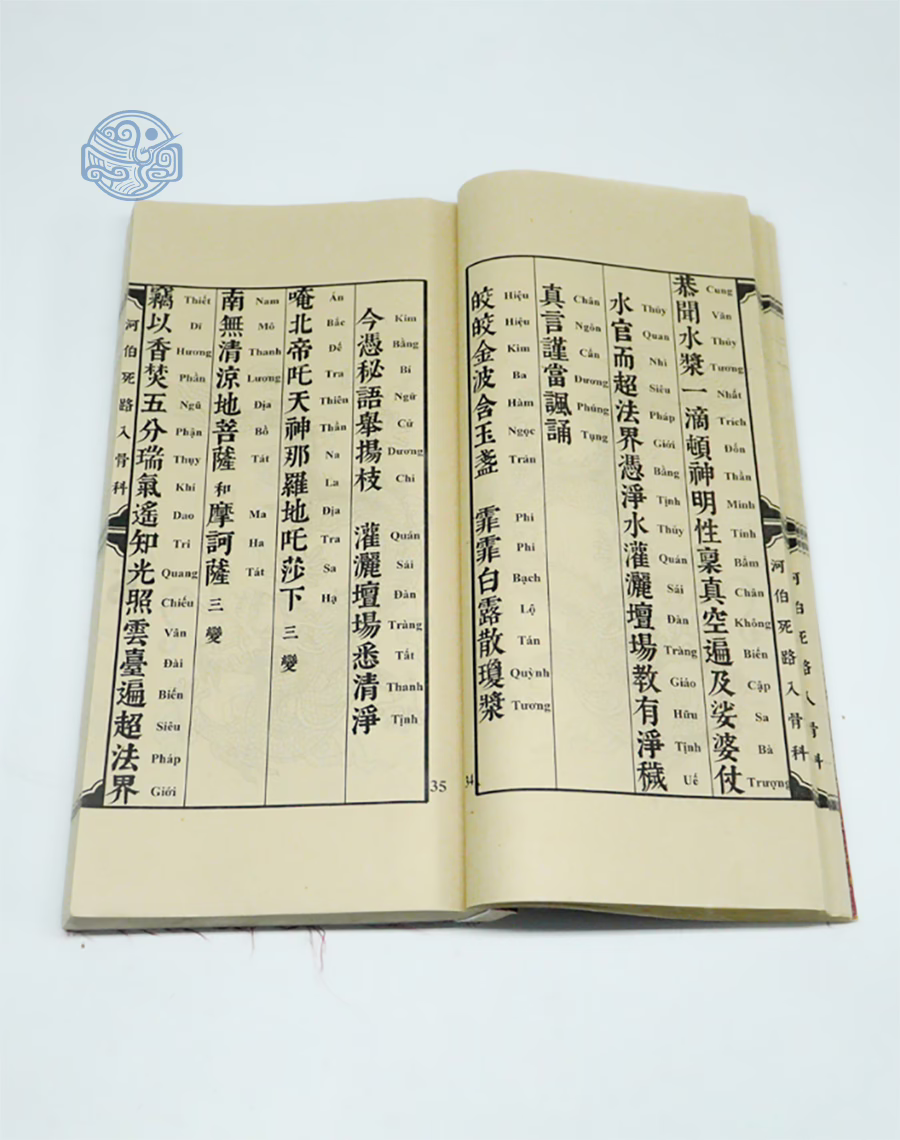 恭聞水漿一滴頓神明性稟真空遍及娑婆仗
Cung Văn Thủy Tương Nhất Trích Đốn Thần Minh Tính Bẩm Chân Không Biến Cập Sa Bà Trượng
水官而超法界憑淨水灌灑壇場教有淨穢
Thủy Quan Nhi Siêu Pháp Giới Bằng Tịnh Thủy Quán Sái Đàn Tràng Giáo Hữu Tịnh Uế
真言謹當諷誦
Chân Ngôn Cẩn Dương Phúng Tụng
皎皎金波含玉盞 霏霏白露散瓊漿
Hiệu Hiệu Kim Ba Hàm Ngọc Trản Phi Phi Bạch Lộ Tán Quỳnh Tương
34
河伯死路入骨科
河伯死路入骨科
今憑秘語舉揚枝 灌灑壇場悉清淨
Kim Bằng Bí Ngữ Cử Dương Chi Quán Sái Đàn Tràng Tất Thanh Tịnh
唵北帝吒天神那羅地吒莎下 三變
Án Bắc Đế Tra Thiên Thần Na La Địa Tra Sa Hạ
南無清涼地菩薩 和 摩訶薩 三變
Nam Mô Thanh Lương Địa Bồ Tát Ma Ha Tát
竊以香焚五分瑞氣遙知光照雲臺遍超法界
Thiết Dĩ Hương Phần Ngũ Phận Thụy Khí Dao Tri Quang Chiếu Vân Đài Biến Siêu Pháp Giới
河伯死路入骨科
35